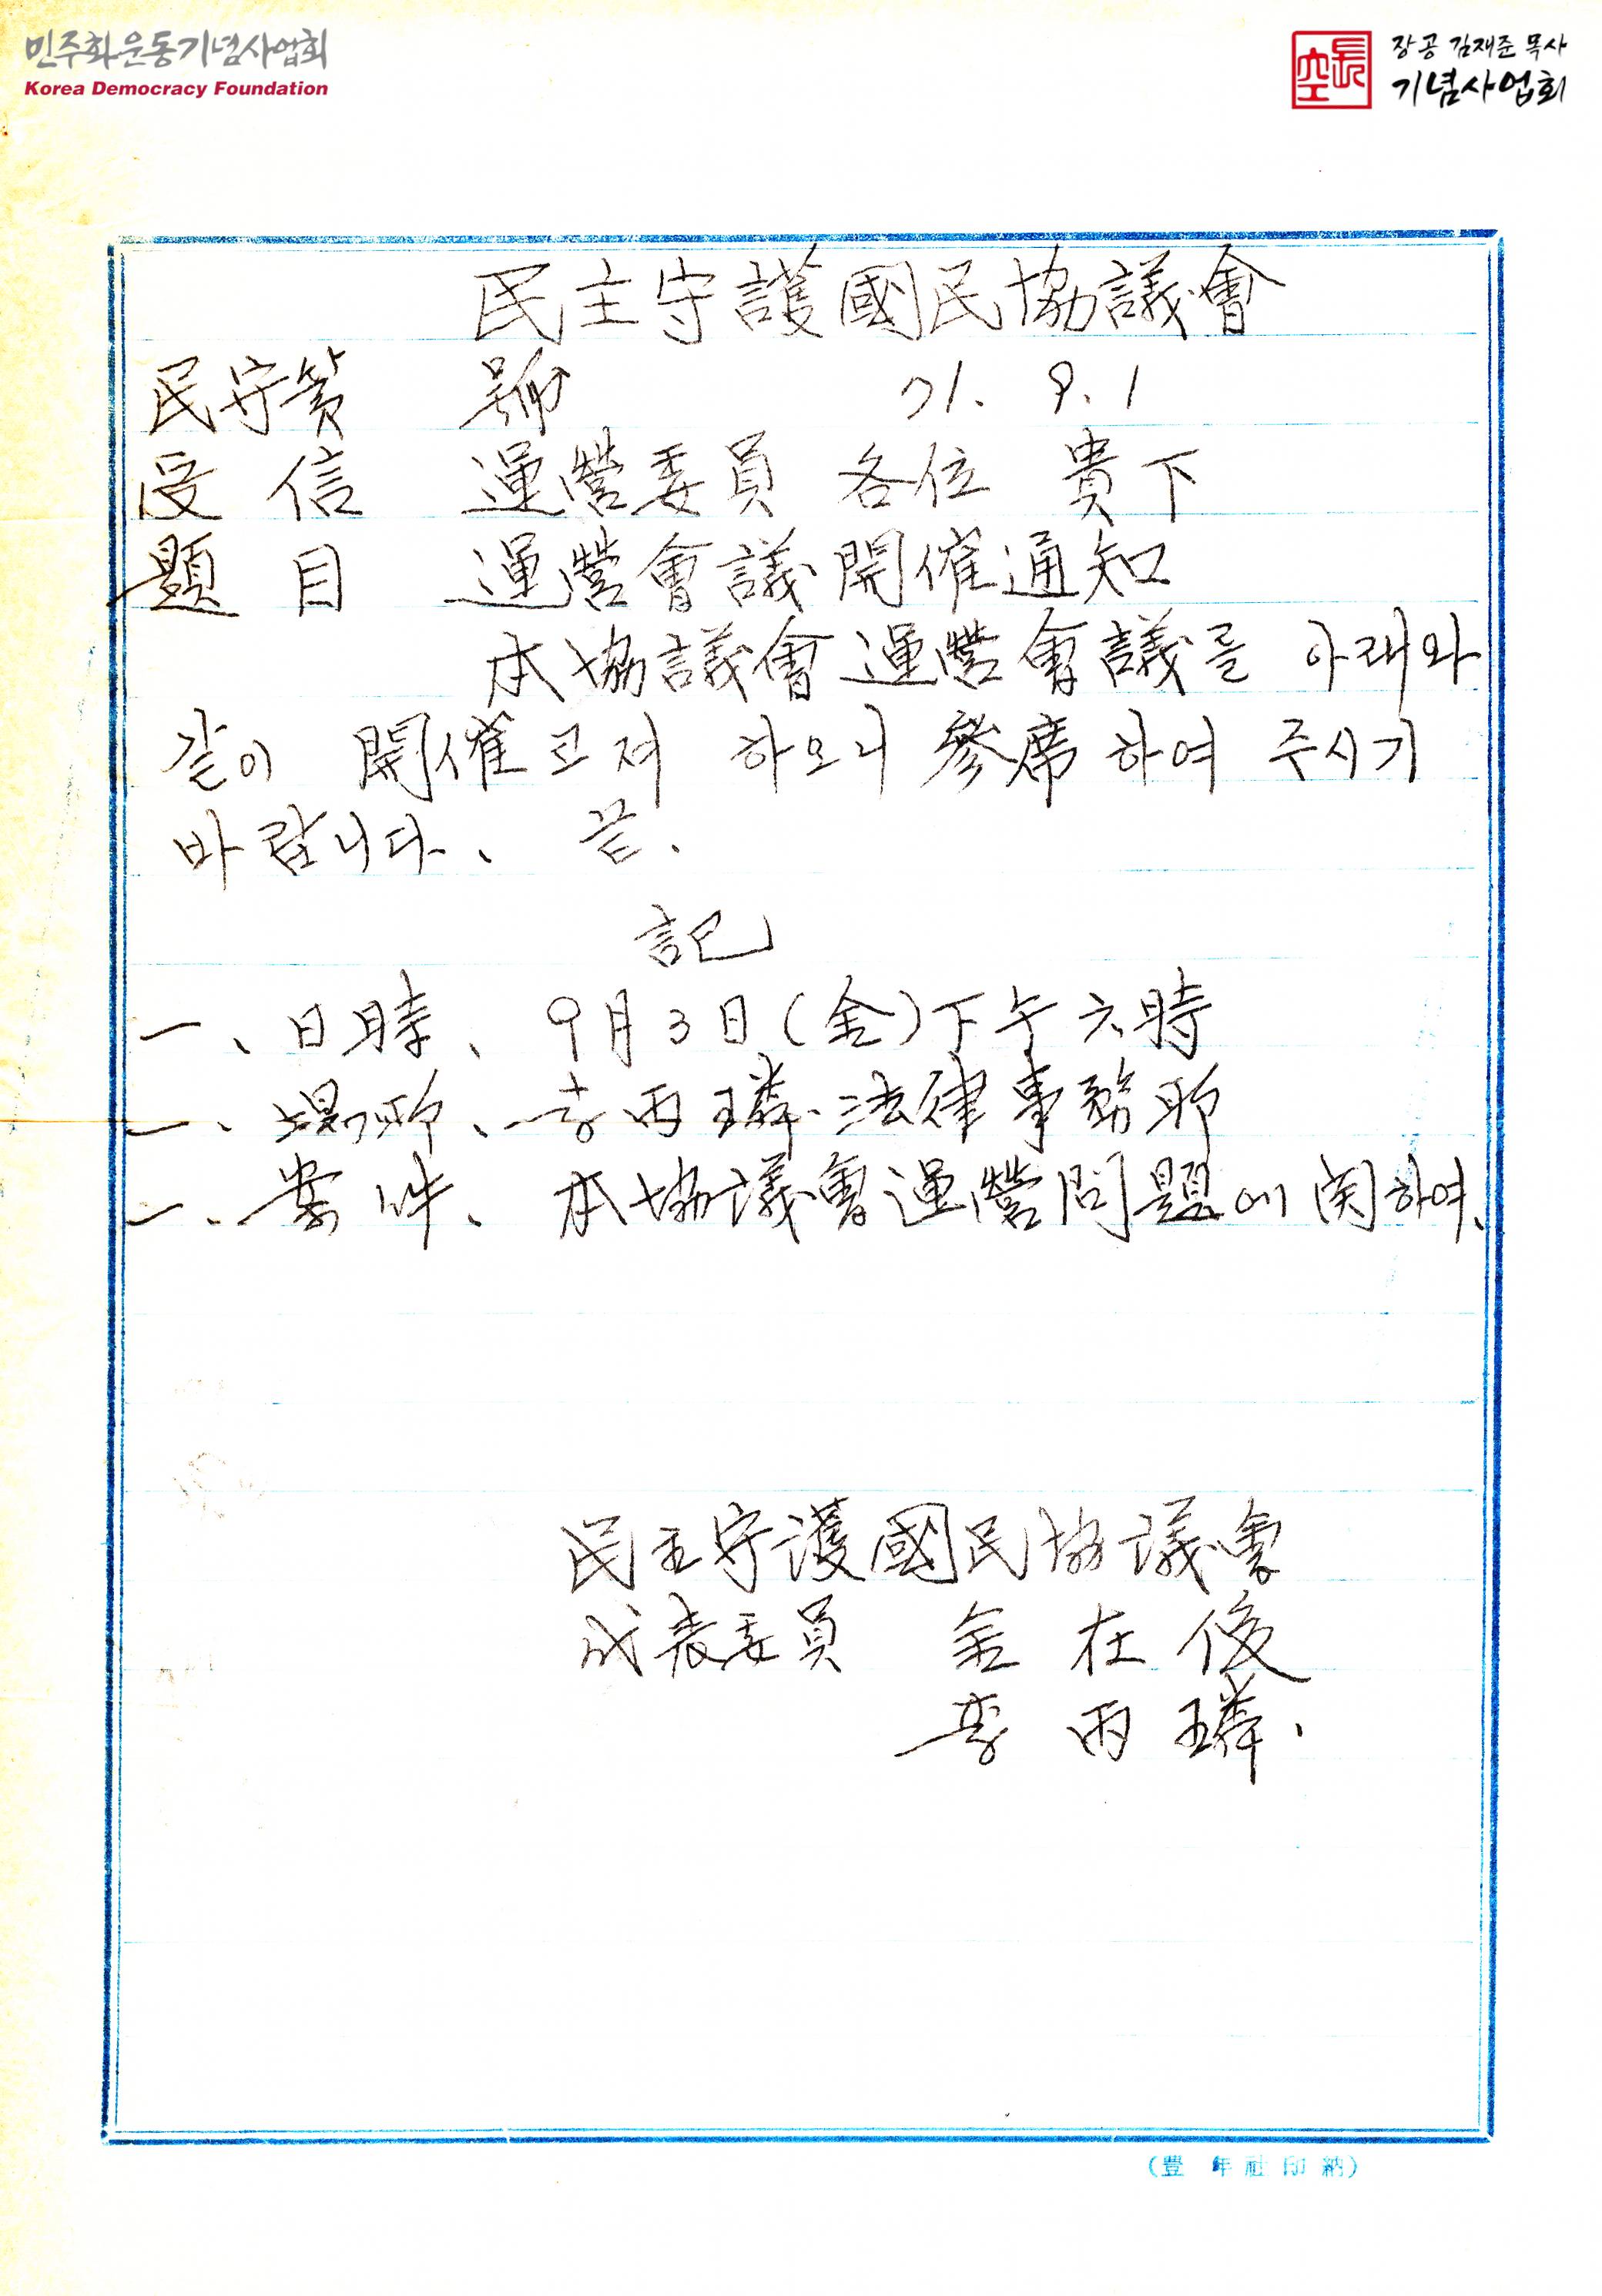 민주화운동기념사업회
Korea Democracy Foundation
장공 김재준 목사
기념사업회
民主守護國民協議會
民守第 號 71. 9. 1
受信 運營委員 各位 貴下
題目 運營會議開催通知
本協議會運營會議를 아래와
같이 開催코져 하오니 參席하여 주시기
바랍니다. 끝.
記
一、日時、9月3日(金)下午六時
一、場所、李丙璘法律事務所
一、案件、本協議會運營問題에 関하여、
民主守護國民協議會
代表委員 金在俊
李丙璘、
(豊年社印納)